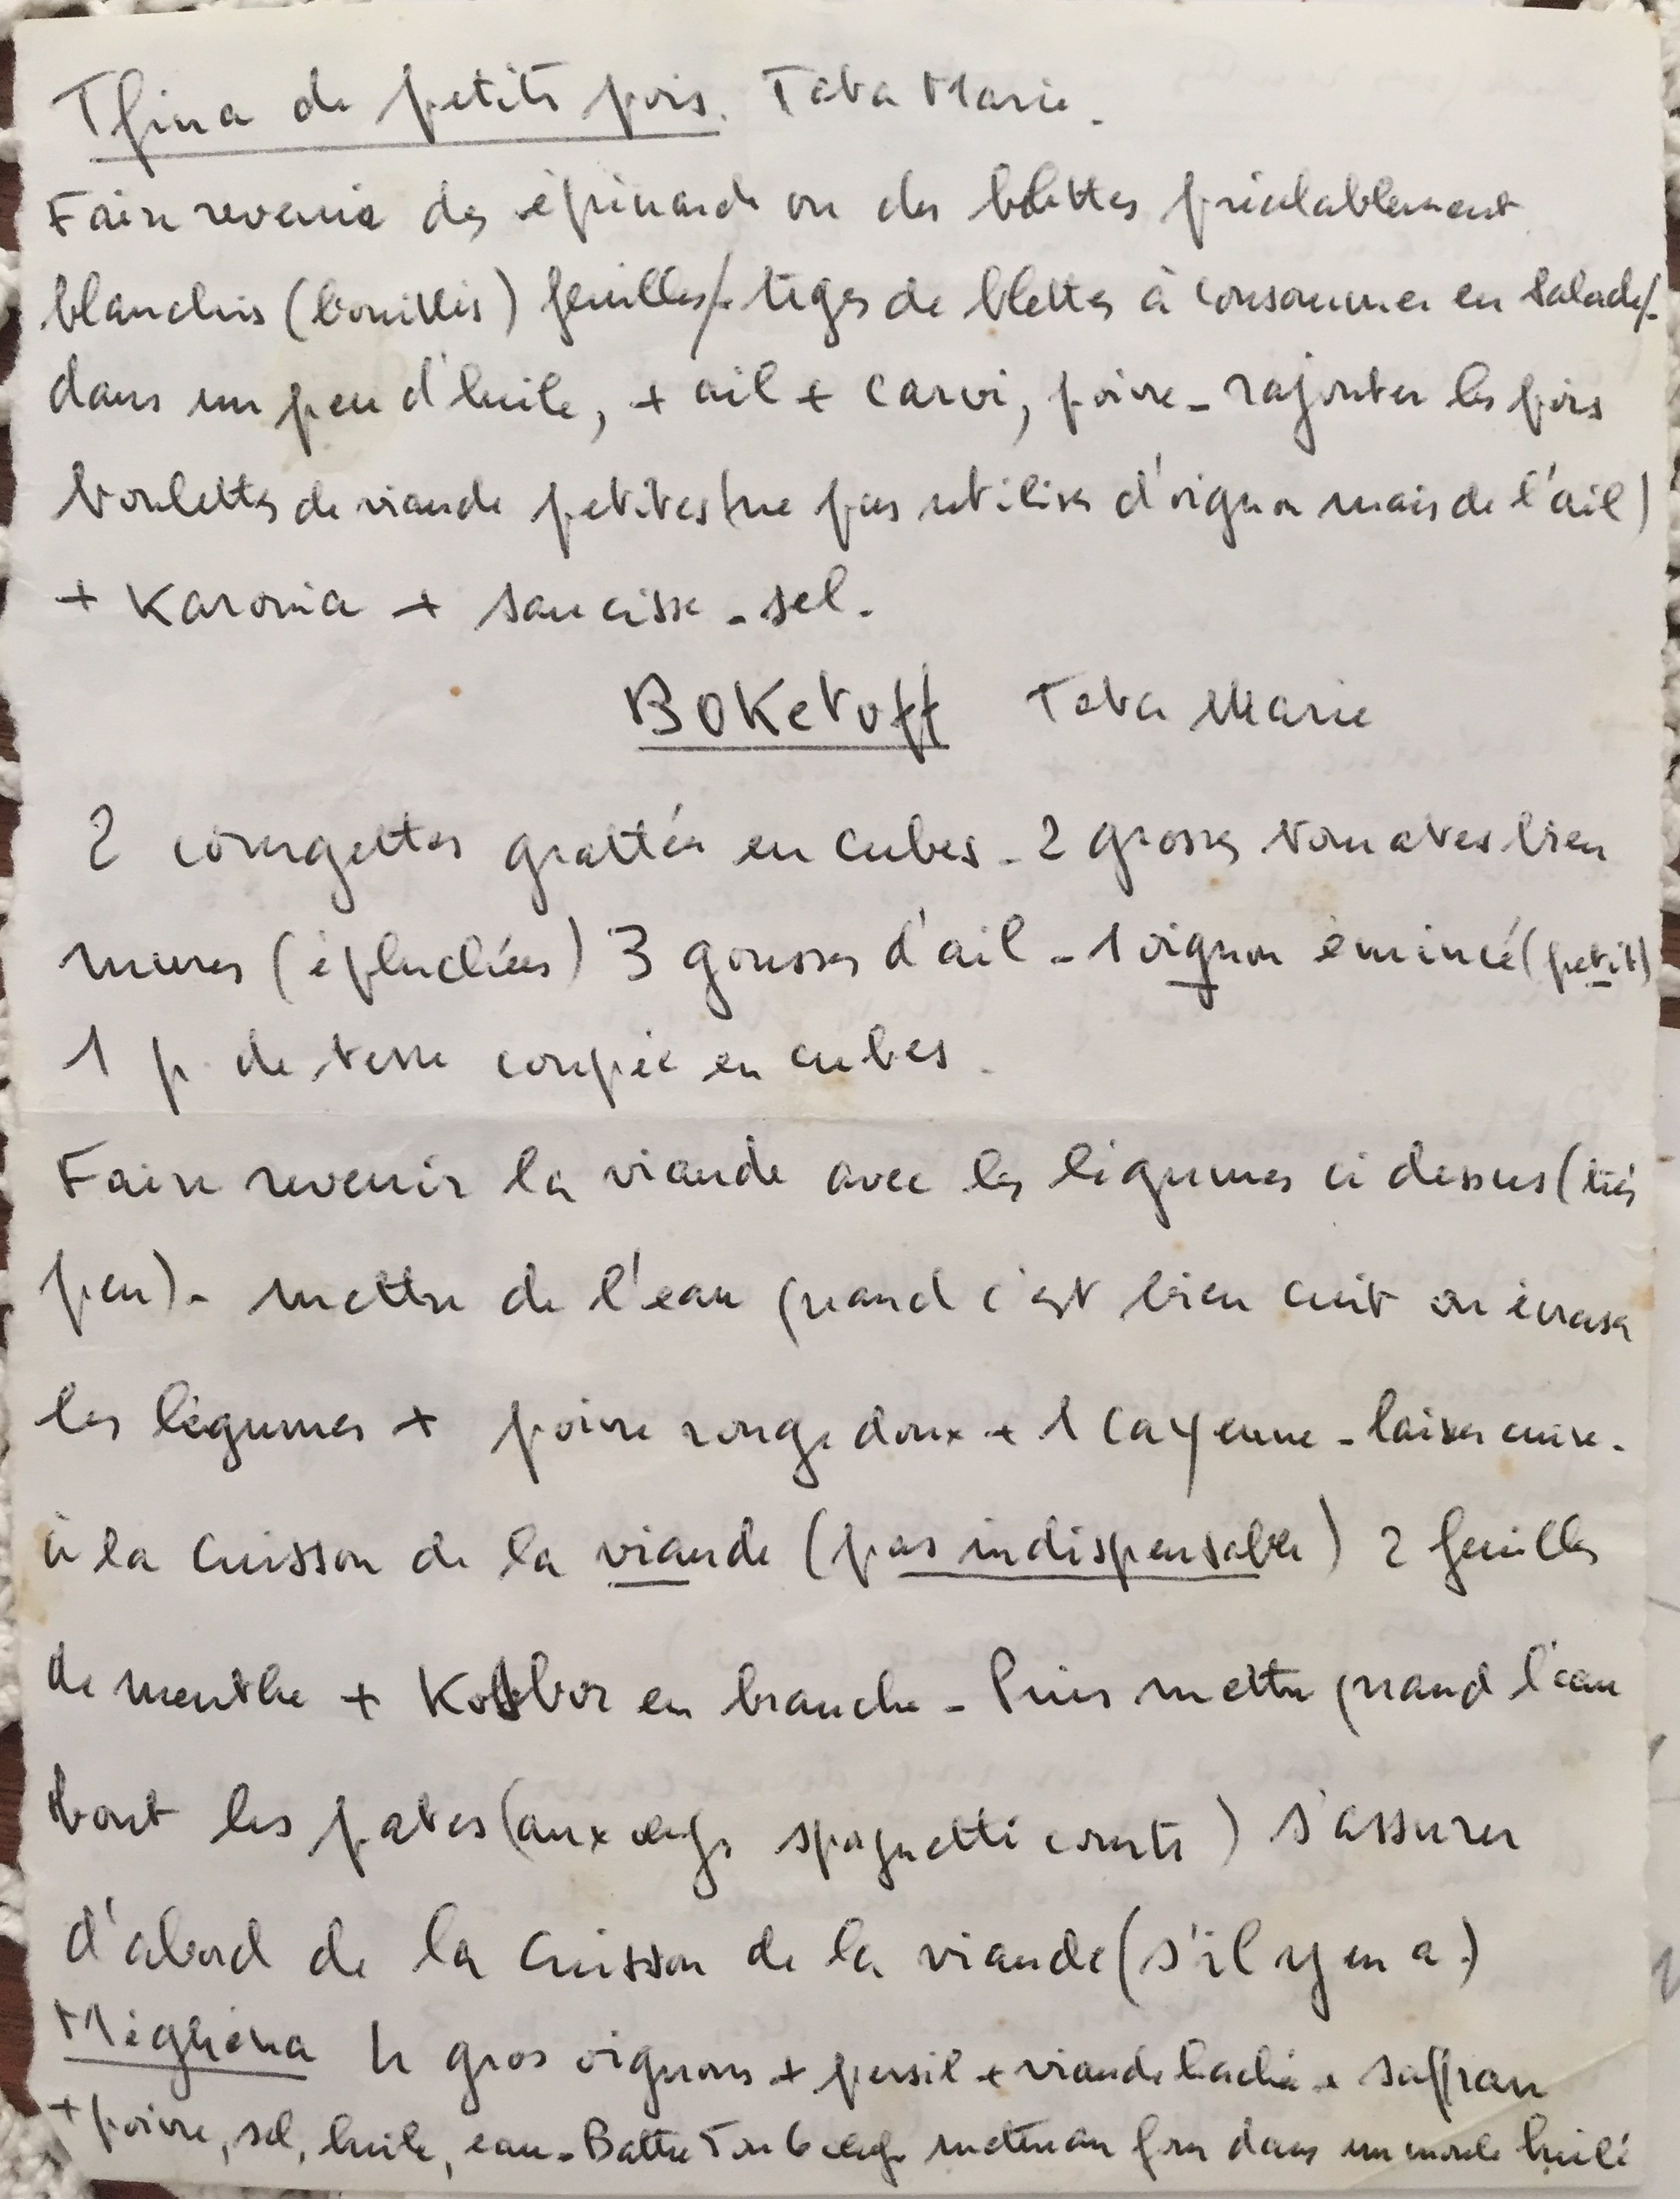 Tfina de petits pois. Tata Marie.
Faire revenir des épinards ou des blettes préalablement
blanchis (bouillis) feuilles/- tiges de blettes à consommer en salade/-
dans un peu d'huile, + ail + carvi, poivre - rajouter les pois
boulettes de viande petites (ne pas utiliser d'oignon mais de l'ail)
+ Karovia + saucisse - sel.
BOKetoff Tata Marie
2 courgettes grattées en cubes - 2 grosses tomates bien
mures (épluchées) 3 gousses d'ail - 1 oignon émincé (petit)
1 p. de terre coupée en cubes.
Faire revenir la viande avec les légumes ci dessus (très
peu) - mettre de l'eau quand c'est bien cuit on écrase
les légumes + poivre rouge doux + 1 Cayenne - laisser cuire -
à la cuisson de la viande (pas indispensable) 2 feuilles
de menthe + Kosbor en branche - Puis mettre quand l'eau
bout les pates (aux œufs spaguetti courts) s'assurer
d'abord de la cuisson de la viande (s'il y en a.)
Méghéna 4 gros oignons + persil + viande hachée + saffran
+ poivre, sel, huile, eau - Battre 5 ou 6 œufs mettre au four dans un moule huilé